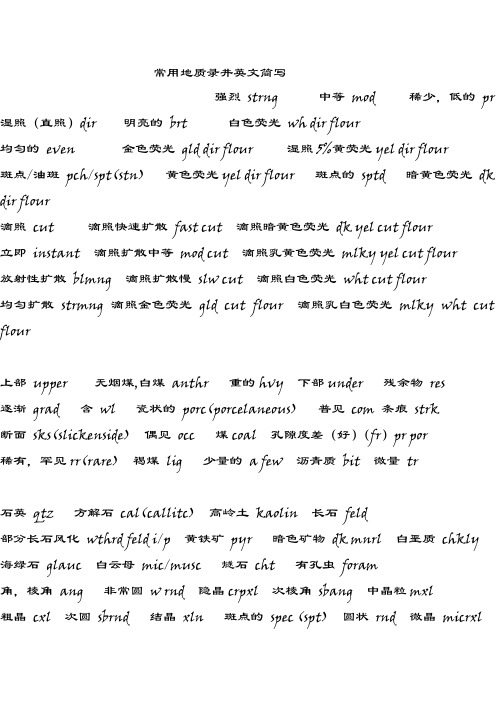 常用地质录井英文简写
强烈 strng 中等 mod 稀少，低的 pr
湿照（直照）dir 明亮的 brt 白色荧光 wh dir flour
均匀的 even 金色荧光 gld dir flour 湿照5%黄荧光 yel dir flour
斑点/油斑 pch/spt(stn) 黄色荧光 yel dir flour 斑点的 sptd 暗黄色荧光 dk
dir flour
滴照 cut 滴照快速扩散 fast cut 滴照暗黄色荧光 dk yel cut flour
立即 instant 滴照扩散中等 mod cut 滴照乳黄色荧光 mlky yel cut flour
放射性扩散 blmng 滴照扩散慢 slw cut 滴照白色荧光 wht cut flour
均匀扩散 strmng 滴照金色荧光 gld cut flour 滴照乳白色荧光 mlky wht cut
flour
上部 upper 无烟煤,白煤 anthr 重的 hvy 下部 under 残余物 res
逐渐 grad 含 wl 瓷状的 porc(porcelaneous) 普见 com 条痕 strk
断面 sks(slickenside) 偶见 occ 煤 coal 孔隙度差（好）(fr) pr por
稀有，罕见 rr(rare) 褐煤 lig 少量的 a few 沥青质 bit 微量 tr
石英 qtz 方解石 cal(callitc) 高岭土 kaolin 长石 feld
部分长石风化 wthrd feld i/p 黄铁矿 pyr 暗色矿物 dk mnrl 白垩质 chkly
海绿石 glauc 白云母 mic/musc 燧石 cht 有孔虫 foram
角，棱角 ang 非常圆 w rnd 隐晶 crpxl 次棱角 sbang 中晶粒 mxl
粗晶 cxl 次圆 sbrnd 结晶 xln 斑点的 spec (spt) 圆状 rnd 微晶 micrxl